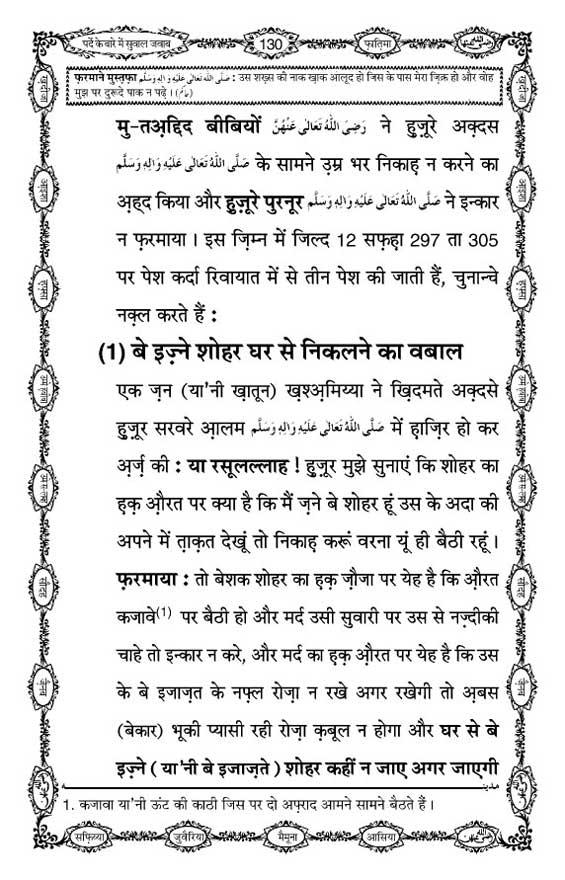 पर्दे के बारे में सुवाल जवाब
130
फ़ातिमा
फ़रमाने मुस्तफ़ा صَلَّى اللهُ تَعَالٰى عَلَيْهِ وَاٰلِهٖ وَسَلَّم : उस शख़्स की नाक ख़ाक आलूद हो जिस के पास मेरा ज़िक्र हो और वोह
मुझ पर दुरूदे पाक न पढ़े। (حاکم)
मु-तअ़द्दिद बीबियों رَضِىَ اللهُ تَعَالٰى عَنْهُنَّ ने हुज़ूरे अक़्दस
صَلَّى اللهُ تَعَالٰى عَلَيْهِ وَاٰلِهٖ وَسَلَّم के सामने उ़म्र भर निकाह़ न करने का
अ़ह्द किया और हुज़ूरे पुरनूर صَلَّى اللهُ تَعَالٰى عَلَيْهِ وَاٰلِهٖ وَسَلَّم ने इन्कार
न फ़रमाया। इस ज़िम्न में जिल्द 12 सफ़ह़ा 297 ता 305
पर पेश कर्दा रिवायात में से तीन पेश की जाती हैं, चुनान्चे
नक़्ल करते हैं :
(1) बे इज़्ने शोहर घर से निकलने का वबाल
एक ज़न (या'नी ख़ातून) ख़श्अ़मिय्या ने ख़िदमते अक़्दसे
हुज़ूर सरवरे आ़लम صَلَّى اللهُ تَعَالٰى عَلَيْهِ وَاٰلِهٖ وَسَلَّم में ह़ाज़िर हो कर
अ़र्ज़ की : या रसूलल्लाह ! हुज़ूर मुझे सुनाएं कि शोहर का
ह़क़ औ़रत पर क्या है कि मैं ज़ने बे शोहर हूं उस के अदा की
अपने में त़ाक़त देखूं तो निकाह़ करूं वरना यूं ही बैठी रहूं।
फ़रमाया : तो बेशक शोहर का ह़क़ ज़ौजा पर येह है कि औ़रत
कजावे(1) पर बैठी हो और मर्द उसी सुवारी पर उस से नज़्दीकी
चाहे तो इन्कार न करे, और मर्द का ह़क़ औ़रत पर येह है कि उस
के बे इजाज़त के नफ़्ल रोज़ा न रखे अगर रखेगी तो अ़बस
(बेकार) भूकी प्यासी रही रोज़ा क़बूल न होगा और घर से बे
इज़्ने ( या'नी बे इजाज़ते ) शोहर कहीं न जाए अगर जाएगी
1. कजावा या'नी ऊंट की काठी जिस पर दो अफ़्राद आमने सामने बैठते हैं।
सफ़िय्या
जुवैरिया
मैमूना
आसिया